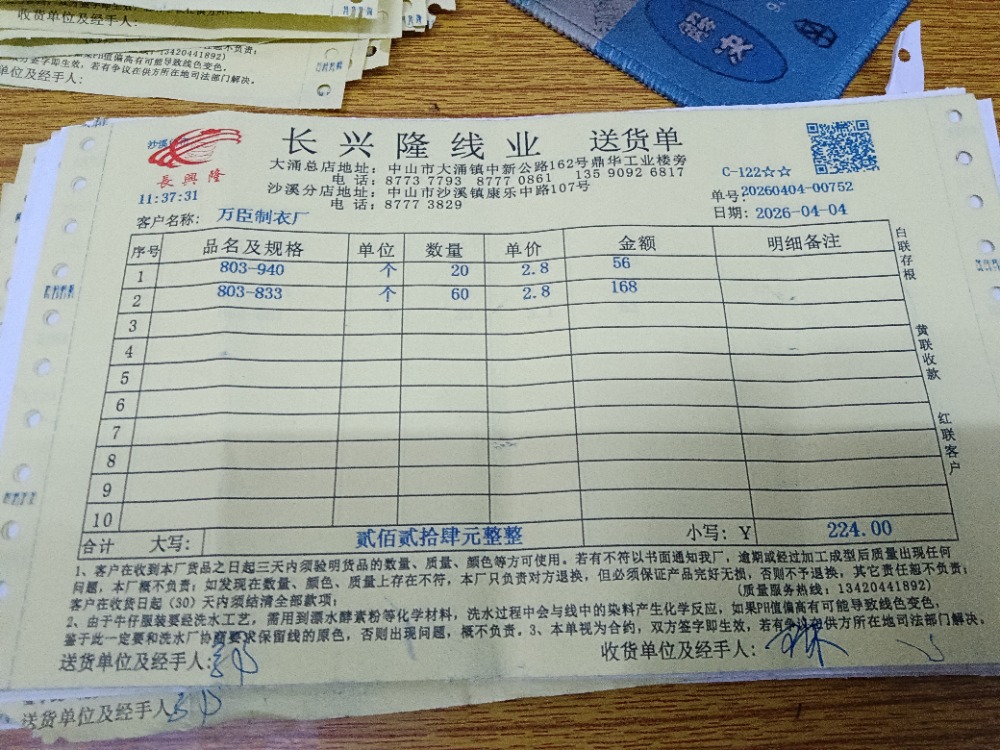 收货单位及经手人:
单位及经手人:
长兴隆线业 送货单
長興隆
大涌总店地址: 中山市大涌镇中新公路162号鼎华工业楼旁
电 话: 8773 7793 8777 0861 135 9092 6817
沙溪分店地址: 中山市沙溪镇康乐中路107号
电 话: 8777 3829
C-122☆☆
11:37:31
单号: 20260404-00752
客户名称: 万臣制衣厂
日期: 2026-04-04
序号 品名及规格 单位 数量 单价 金额 明细备注
1 803-940 个 20 2.8 56
2 803-833 个 60 2.8 168
3
4
5
6
7
8
9
10
合计 大写: 贰佰贰拾肆元整整 小写: Y 224.00
白联存根
黄联收款
红联客户
1、客户在收到本厂货品之日起三天内须验明货品的数量、质量、颜色等方可使用。若有不符以书面通知我厂, 逾期或经过加工成型后质量出现任何
问题, 本厂概不负责; 如发现在数量、颜色、质量上存在不符, 本厂只负责对方退换, 但必须保证产品完好无损, 否则不予退换, 其它责任恕不负责;
客户在收货日起（30）天内须结清全部款项; (质量服务热线: 13420441892)
2、由于牛仔服装要经洗水工艺, 需用到漂水酵素粉等化学材料, 洗水过程中会与线中的染料产生化学反应, 如果PH值偏高有可能导致线色变色,
鉴于此一定要和洗水厂协商要求保留线的原色, 否则出现问题, 概不负责。3、本单视为合约, 双方签字即生效, 若有争议在供方所在地司法部门解决。
送货单位及经手人:
收货单位及经手人:
送货单位及经手人